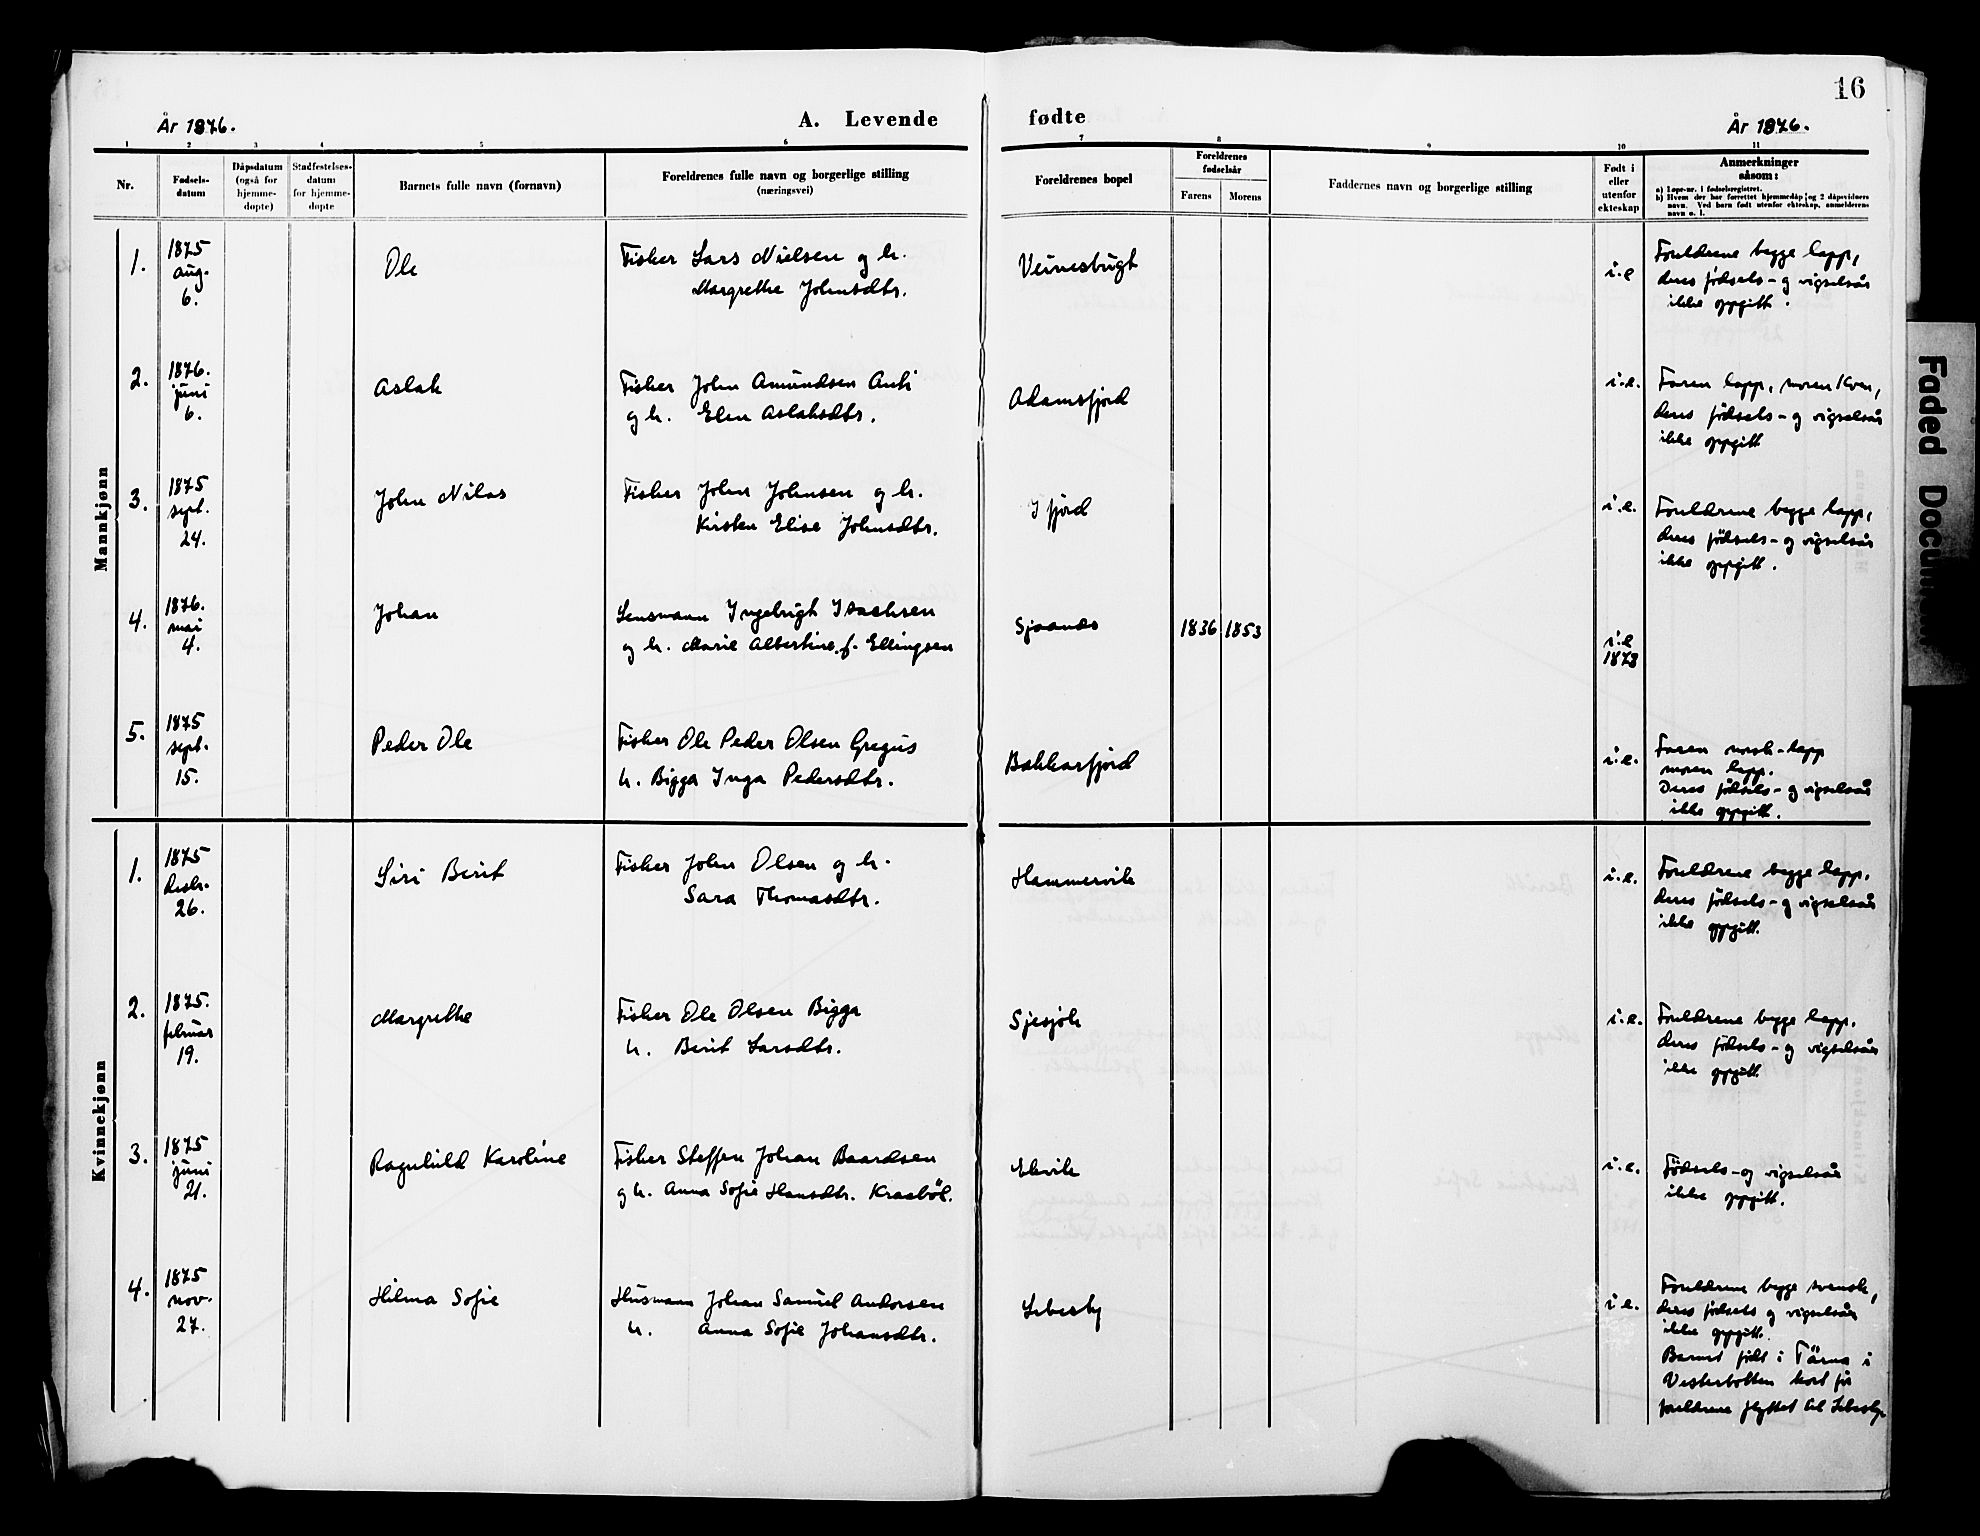 16
År 1876.
A. Levende
fødte
År 1876.
1 2 3 4 5 6 7 8 9 10 11
Nr.
Fødsels-
datum
Dåpsdatum
(også for
hjemme-
døpte)
Stadfestelses-
datum
for hjemme-
døpte
Barnets fulle navn (fornavn)
Foreldrenes fulle navn og borgerlige stilling
(næringsvei)
Foreldrenes bopel
Foreldrenes
fødselsår
Farens
Morens
Faddernes navn og borgerlige stilling
Født i
eller
utenfor
ekteskap
Anmerkninger
såsom:
a) Løpe-nr. i fødselsregistret.
b) Hvem der har forrettet hjemmedåp og 2 dåpsvidners
navn. Ved barn født utenfor ekteskap, anmelderens
navn o. l.
Mannkjønn
1.
1875
aug.
6.
Ole
Fisker Lars Nielsen og h.
Margrethe Johnsdtr.
Veinesbugt
i.e
Foreldrene begge lapp,
deres fødsels- og vigselsår
ikke oppgitt.
2.
1876.
juni
6.
Aslak
Fisker John Amundsen Anti
og h. Elen Aslaksdtr.
Adamsfjord
i.e.
Faren lapp, moren kven,
deres fødsels- og vigselsår
ikke oppgitt
3.
1875
sept.
24.
John Nilas
Fisker John Johnsen og h.
Kirsten Elise Johnsdtr.
Ifjord
i.e.
Foreldrene begge lapp,
deres fødsels- og vigselsår
ikke oppgitt.
4.
1876.
mai
4.
Johan
Lensmann Ingebrigt Isachsen
og h. Marie Albertine f. Ellingsen
Sjaanes
1836
1853
i.e
1873
5.
1875
sept.
15.
Peder Ole
Fisker Ole Peder Olsen Gregus
h. Bigga Inga Pedersdtr.
Bakkarfjord
i.e.
Faren norsk-lapp
moren lapp.
Deres fødsels- og vigselsår
ikke oppgitt.
Kvinnekjønn
1.
1875
desbr.
26.
Siri Berit
Fisker John Olsen og h.
Sara Thomasdtr.
Hammervik
i.e.
Foreldrene begge lapp,
deres fødsels- og vigselsår
ikke oppgitt.
2.
1875.
februar
19.
Margrethe
Fisker Ole Olsen Bigga
h. Berit Larsdtr.
Sjesjok
i.e.
Foreldrene begge lapp.
deres fødsels- og vigselsår
ikke oppgitt.
3.
1875
juni
21.
Ragnhild Karoline
Fisker Steffen Johan Baardsen
og h. Anna Sofie Hansdtr. Kraabøl.
Ekvik
i.e.
Fødsels- og vigselsår
ikke oppgitt.
4.
1875
nov.
27.
Hilma Sofie
Husmann Johan Samuel Andersen
h. Anna Sofie Johansdtr.
Lebesby
i.e.
Foreldrene begge svensk,
deres fødsels og vigselsår
ikke oppgitt.
Barnet født i Tärna i
Vesterbotten kort før
foreldrene flyttet til Lebesby
Faded Docum